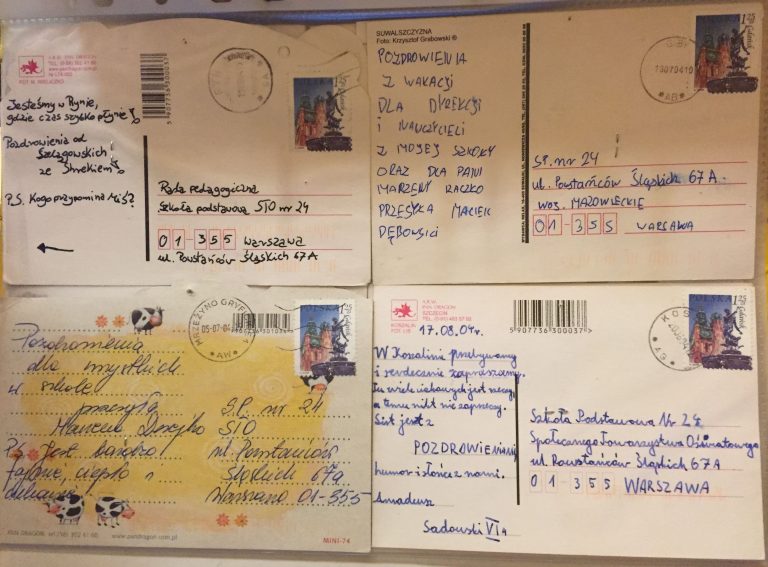 Jesteśmy w Rynie,
gdzie czas szybko płynie!
Pozdrowienia od
Szelągowskich
ze Shrekiem!
P.S. Kogo przypomina Miś?
5907736300037
Rada pedagogiczna
Szkoła podstawowa STO nr 24
01-355 Warszawa
ul. Powstańców Śląskich 67A
SUWALSZCZYZNA
Foto: Krzysztof Grabowski ®
POZDROWIENIA
Z WAKACJI
DLA DYREKCJI
I NAUCZYCIELI
Z MOJEJ SZKOŁY
ORAZ DLA PANI
MARZENY RACZKO
PRZESYŁA MACIEK
DĘBOWSKI
S.P. nr 24
ul. Powstańców Śląskich 67A.
WOJ. MAZOWIECKIE
01-355 WARSAWA
MRZEŻYNO GRYFICKIE
05-07-04
Pozdrowienia
dla wszystkich
w szkole
przesyła
Marcin
P.S. Jest bardzo
fajnie, ciepło i
S.P. nr 24
STO
ul. Powstańców
Śląskich 67a
Warszawa 01-355
PAN DRAGON
www.pandragon.com.pl
MINI-74
KOSZALIN
5907736300037
17.08.04r.
W Koszalinie przebywamy
i serdecznie zapraszamy.
Tu wiele ciekawych jest rzeczy
a temu nikt nie zaprzeczy.
List jest z
POZDROWIENIAMI
humor i słońce z nami.
Amadeusz
Sadowski VI a
POLSKA
1,25
Szkoła Podstawowa Nr 24
Społecznego Towarzystwa Oświatowego
ul. Powstańców Śląskich 67A
01-355 WARSZAWA